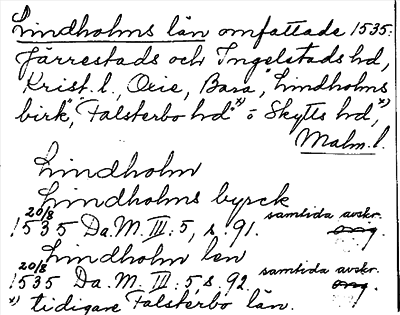 Lindholms län omfattade 1535:
Järrestads och Ingelstads hd,
Krist. l., Oxie, Bara, "Lindholms
birk", "Falsterbo hd" x) o "Skytts hd", x)
Malm. l.
Lindholm
Lindholms byrck
20/8 1535 Da. M. III: 5, s. 91. samtida avskr. orig.
Lindholm len
20/8 1535 Da. M. III: 5, s. 92 samtida avskr. orig.
x) tidigare Falsterbo län.